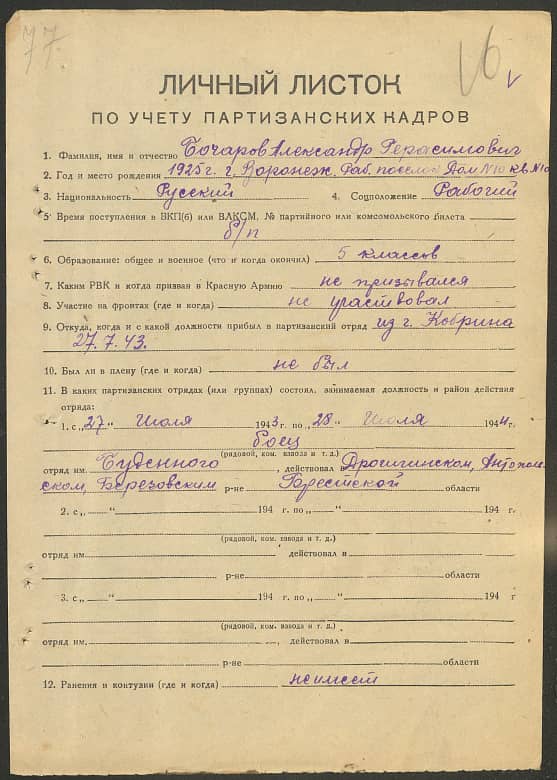 77.
16
V
ЛИЧНЫЙ ЛИСТОК
ПО УЧЕТУ ПАРТИЗАНСКИХ КАДРОВ
1. Фамилия, имя и отчество Бочаров Александр Герасимович
2. Год и место рождения 1925 г. г. Воронеж. Раб. поселок Дом N10 кв N10
3. Национальность Русский 4. Соцположение Рабочий
5. Время поступления в ВКП(б) или ВЛКСМ, № партийного или комсомольского билета
б/п
6. Образование: общее и военное (что и когда окончил) 5 классов
7. Каким РВК и когда призван в Красную Армию не призывался
8. Участие на фронтах (где и когда) не участвовал
9. Откуда, когда и с какой должности прибыл в партизанский отряд из г. Кобрина
27.7.43.
10. Был ли в плену (где и когда) не был
11. В каких партизанских отрядах (или группах) состоял, занимаемая должность и район действия
отряда:
1. с „27" Июля 1943 г. по „28" Июля 1944 г.
боец
(рядовой, ком. взвода и т. д.)
отряд им. Буденного, действовал Дрогичинском, Антополь-
ском, Березовским р-не Брестской области
2. с „ " 194 г. по „ " 194 г.
(рядовой, ком. взвода и т. д.)
отряд им. действовал в
р-не области
3. с „ " 194 г. по „ " 194 г
(рядовой, ком. взвода и т. д.)
отряд им. , действовал в
р-не области
12. Ранения и контузии (где и когда) не имеет